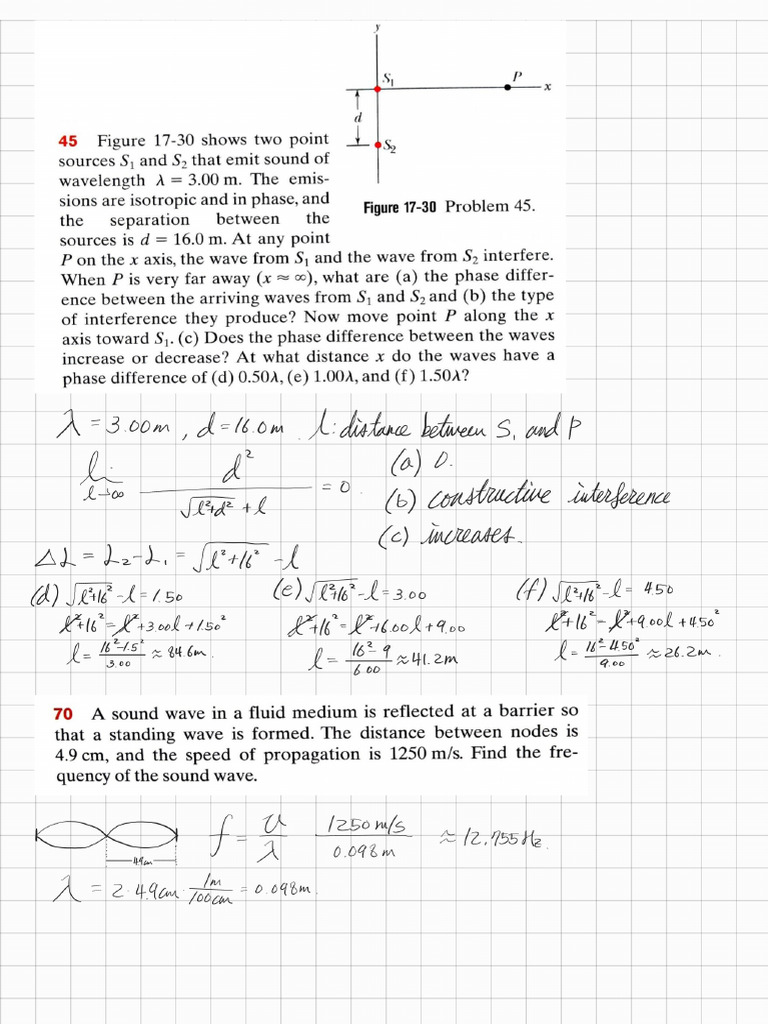 y
S₁
P
x
d
S₂
45 Figure 17-30 shows two point
sources S₁ and S₂ that emit sound of
wavelength λ = 3.00 m. The emis-
sions are isotropic and in phase, and
the separation between the
sources is d = 16.0 m. At any point
Figure 17-30 Problem 45.
P on the x axis, the wave from S₁ and the wave from S₂ interfere.
When P is very far away (x ≈ ∞), what are (a) the phase differ-
ence between the arriving waves from S₁ and S₂ and (b) the type
of interference they produce? Now move point P along the x
axis toward S₁. (c) Does the phase difference between the waves
increase or decrease? At what distance x do the waves have a
phase difference of (d) 0.50λ, (e) 1.00λ, and (f) 1.50λ?
λ = 3.00m , d = 16.0m l: distance between S₁ and P
li l→∞ d² / √(l²+d²) + l = 0
(a) 0.
(b) constructive interference
(c) increases.
ΔL = L₂ - L₁ = √(l²+16²) - l
(d) √(l²+16²) - l = 1.50
l²+16² = l²+3.00l+1.50²
l = (16²-1.5²)/3.00 ≈ 84.6m.
(e) √(l²+16²) - l = 3.00
l²+16² = l²+6.00l+9.00
l = (16²-9)/6.00 ≈ 41.2m
(f) √(l²+16²) - l = 4.50
l²+16² = l²+9.00l+4.50²
l = (16²-4.50²)/9.00 ≈ 26.2m.
70 A sound wave in a fluid medium is reflected at a barrier so
that a standing wave is formed. The distance between nodes is
4.9 cm, and the speed of propagation is 1250 m/s. Find the fre-
quency of the sound wave.
4.9cm
f = v/λ 1250 m/s / 0.098 m ≈ 12.755Hz.
λ = 2·4.9cm · 1m/100cm = 0.098m.